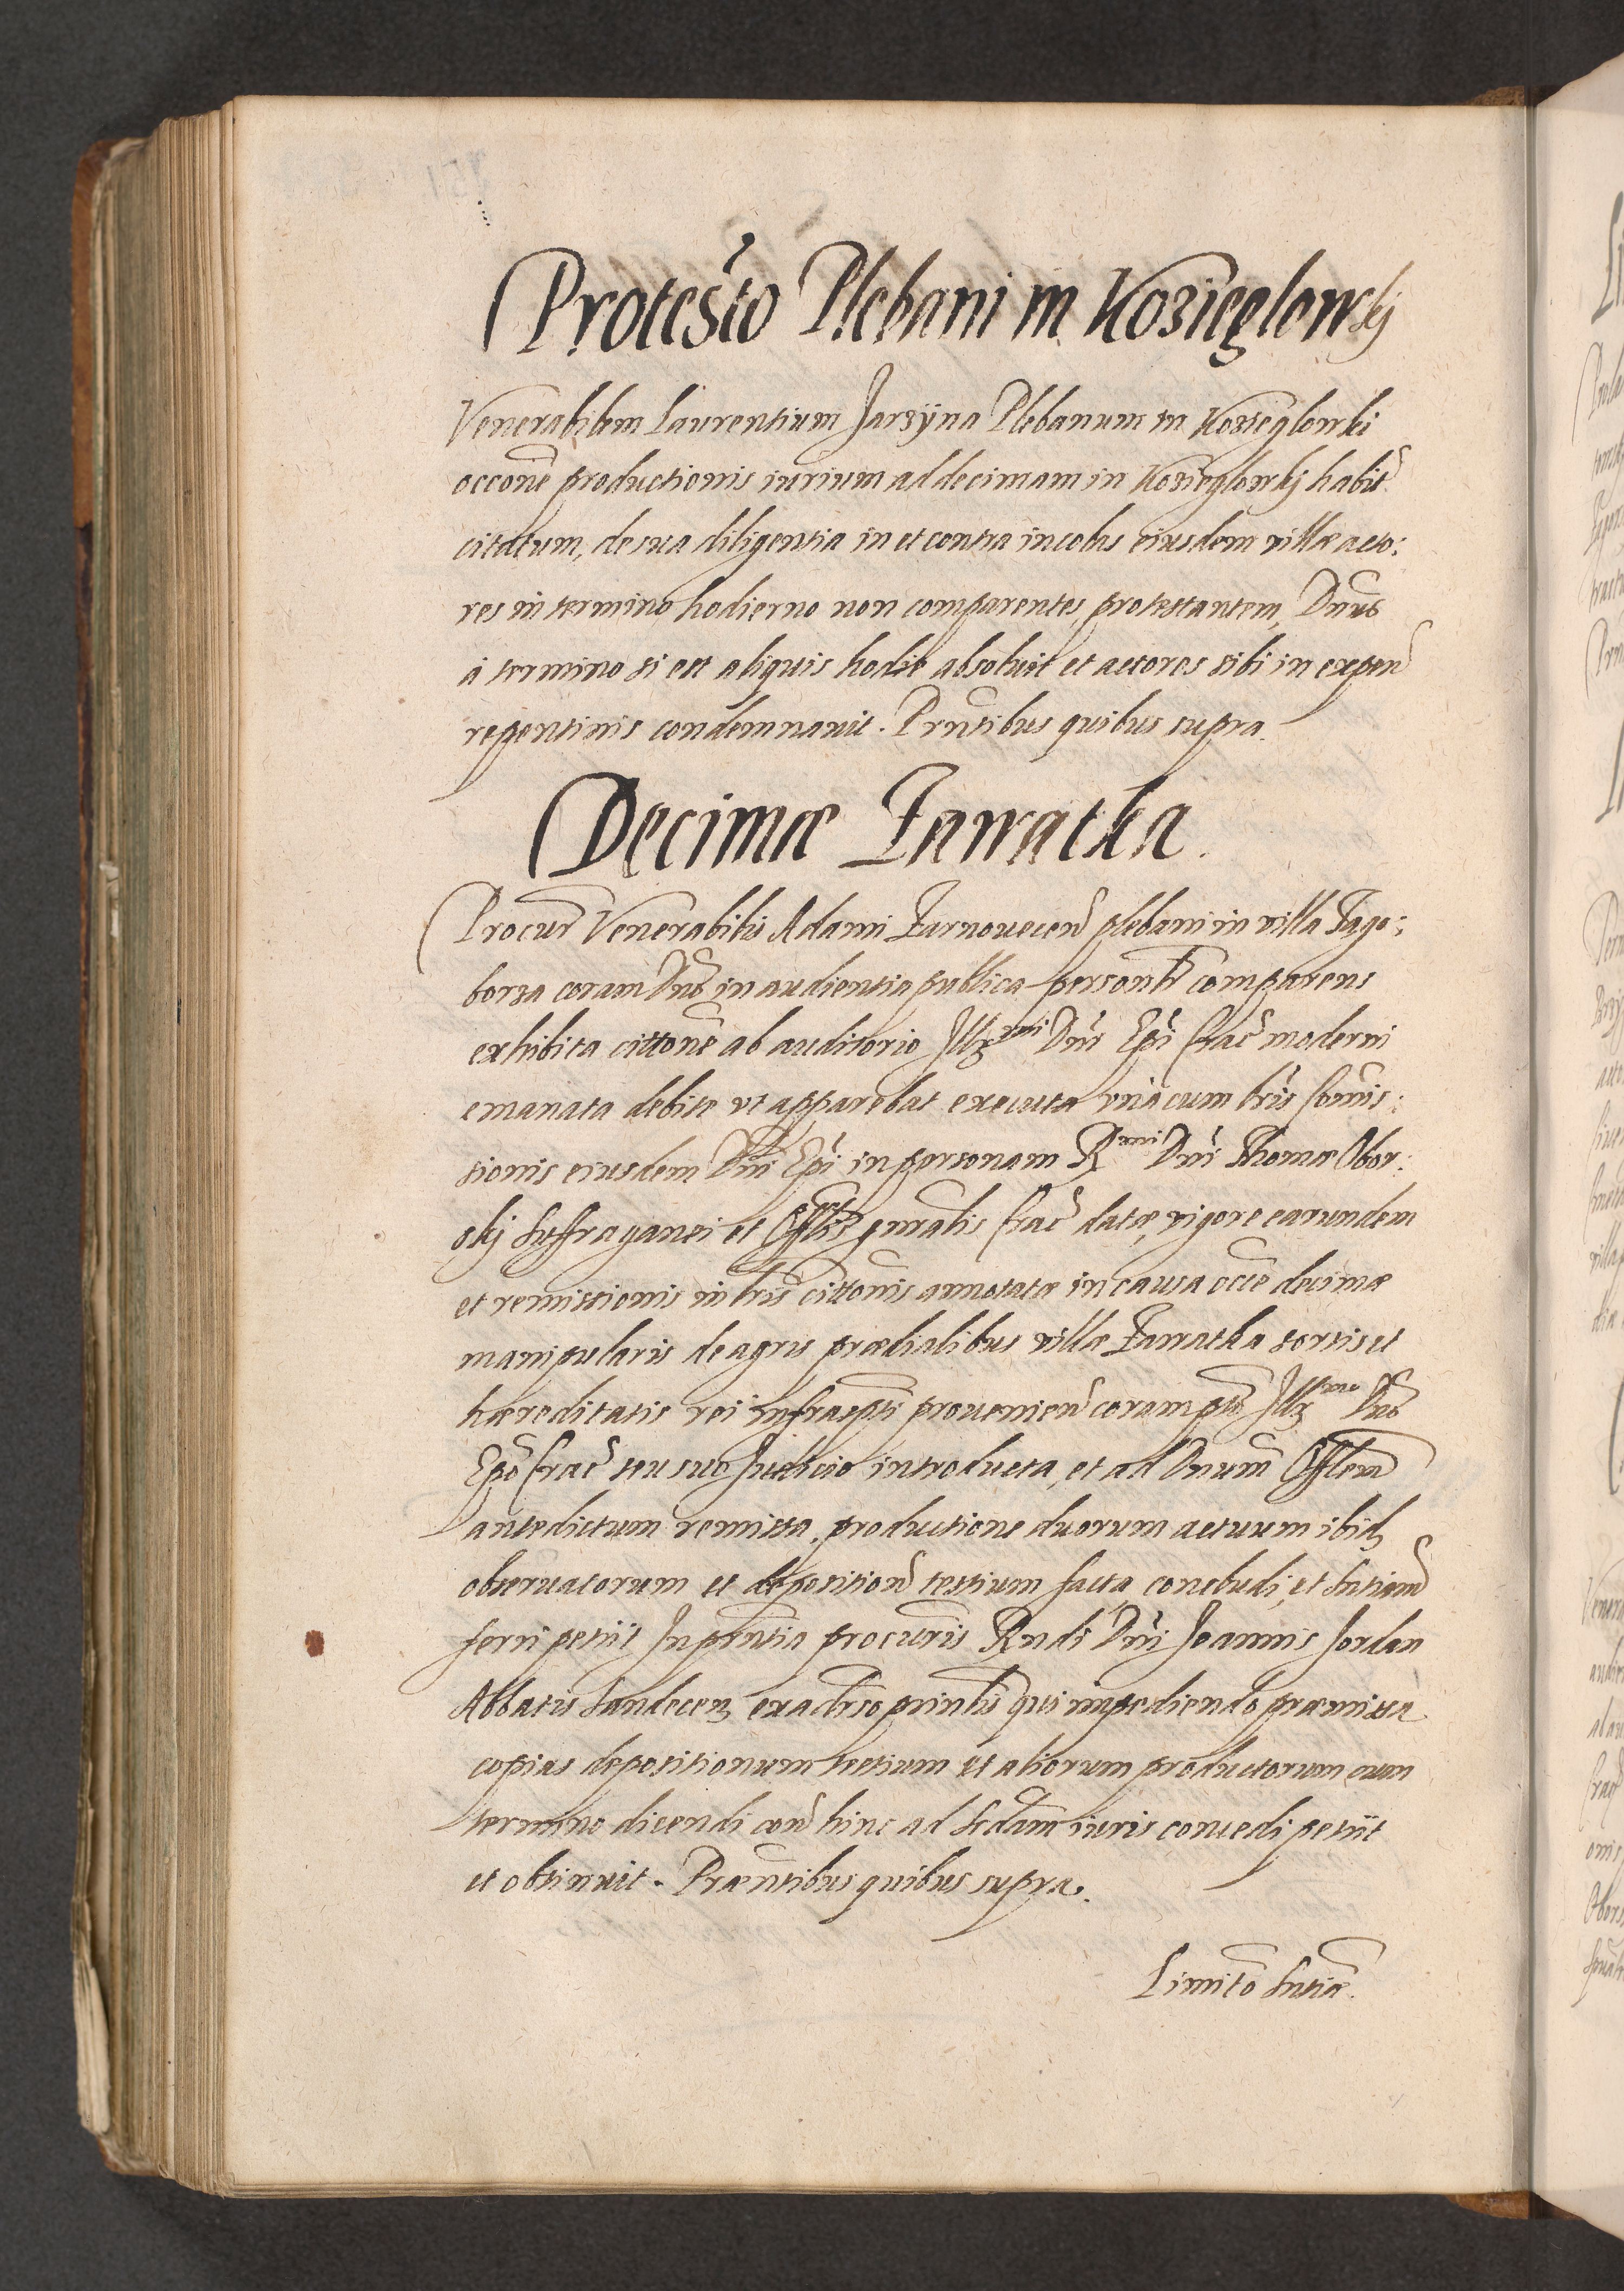 Protesto Plebani in Kozieglowkj
Venerabilem Laurentium Jarzÿna Plebanum in Kozieglowki
occone productionis iurium ad decimam in Kozieglowkj habit
citatum, de sua diligentia in et contra incolas eiusdem villæ acto:
res in termino hodierno non comparentes, protestantem, Dnus
à termino si est aliquis hodie absoluit et actores sibi in expen
repentinis condemnauit. Prntibus quibus supra.
Decimæ Zawatka.
Procur Venerabilis Adami Zarnouecen plebani in villa Jago:
borza coram Dno in audientia publica personlr comparens
exhibita cittone ab auditorio Illrmi Dni Epi Crac moderni
emanata debite vt apparebat executa vnà cum lris
sionis eiusdem Dni Epi in personam Rmi Dni Thomæ Obor:
skj Suffraganei et Offlis gnralis Crac datæ, vigore earundem
et remissionis in lris cittonis annotatæ in causa occe decimæ
manipularis de agris prædialibus villæ Zawatka sortis et
hæreditatis rei infrascpti prouenien coram pto Illrmo Dno
Epo Crac seu suo Judicio introducta, et ad Dnum Offlem
antedictum remissa, productione duorum actuum ibid
obseruatorum et deposition testium facta concludi, et Sntiam
ferri petiit In prntia procuris Rndi Dni Joannis Jordan
Abbatis Sandecen ex aduerso prinlis qui impediendo præmissa
copias depositionum testium et aliorum productorum cum
termino dicendi con hinc ad Scdam iuris concedi petiit
et obtinuit. Præntibus quibus supra.
Limito Sntiæ.